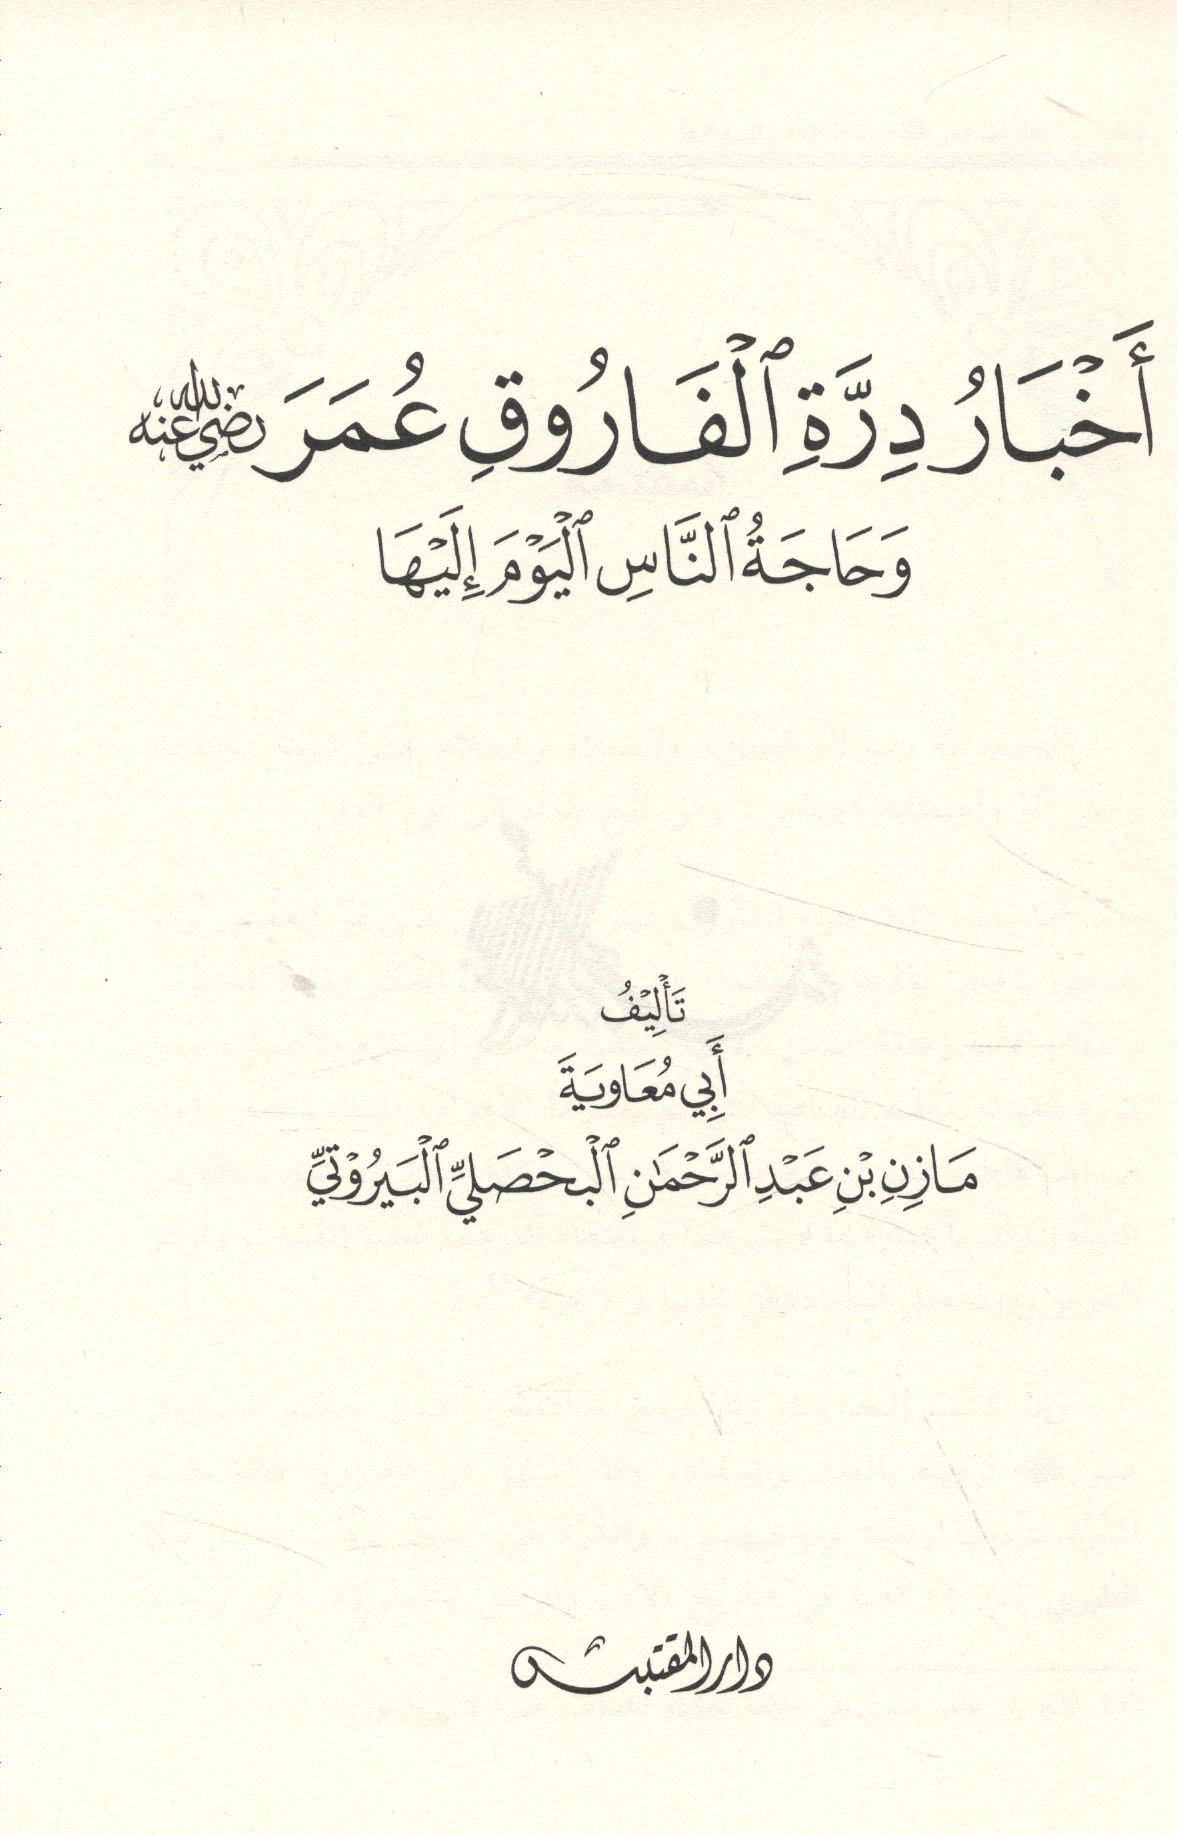 أَخْبَارُ دِرَّةِ ٱلْفَارُوقِ عُمَرَ رضي الله عنه
وَحَاجَةُ ٱلنَّاسِ ٱلْيَوْمَ إِلَيْهَا
تَأْلِيْفُ
أَبِي مُعَاوِيَةَ
مَازِنِ بْنِ عَبْدِ ٱلرَّحْمٰنِ ٱلْبحْصَلِيِّ ٱلْبَيْرُوْتِيِّ
دار المقتبس